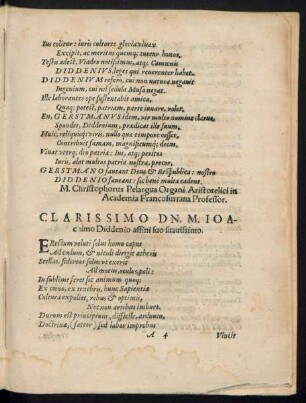 Ius colitur: iuris cultores gloria vivax
Excipit, ac meritus quemq; tuetur honos.
Testis adest, Viadro notissimus, atq; Camœnis
DIDDENIVS, leges qui reverenter habet.
DIDDENIVM refero, cui non natura negavit
Ingenium, cui nil sedula Musa negat.
Ille laborantes ope sustentabit amica,
Quaq; potest, patriam, parte iuvare, volet.
En, GERSTMANVS idem, vir multo nomine clarus,
Spondet, Diddenium, prædicat ille suum,
Huic, reliquisq; viris, nullo qua tempore cesset,
Contribuit famam, magnificumq; decus.
Vivat uterq; diu patriæ: Ius, atq; perita
Iuris, alat multos patria nostra, precor,
GERSTMANO faveant Deus & Respublica: nostro
DIDDENIO faveant: sic bene multa cadent.
M. Christophorus Pelargus Organi Aristotelici in
Academia Francofurtana Professor.
CLARISSIMO DN. M. IOA-
chimo Diddenio affini suo suavissimo.
ERectum velut solus homo caput
Attendum, & nitidi dirigit ætheris
Stellas, sidereos solus et exerit
Ad mutum, oculos, poli:
In sublime feret sic animum quoq;
Ex cœno, ex tenebris, hunc Sapientia
Cultura expoliet, rebus & optimis,
Nec non artibus imbuet.
Durum est principium, difficile, arduum,
Doctrinæ, (fateor) sed labor improbus
A 4 Vincit